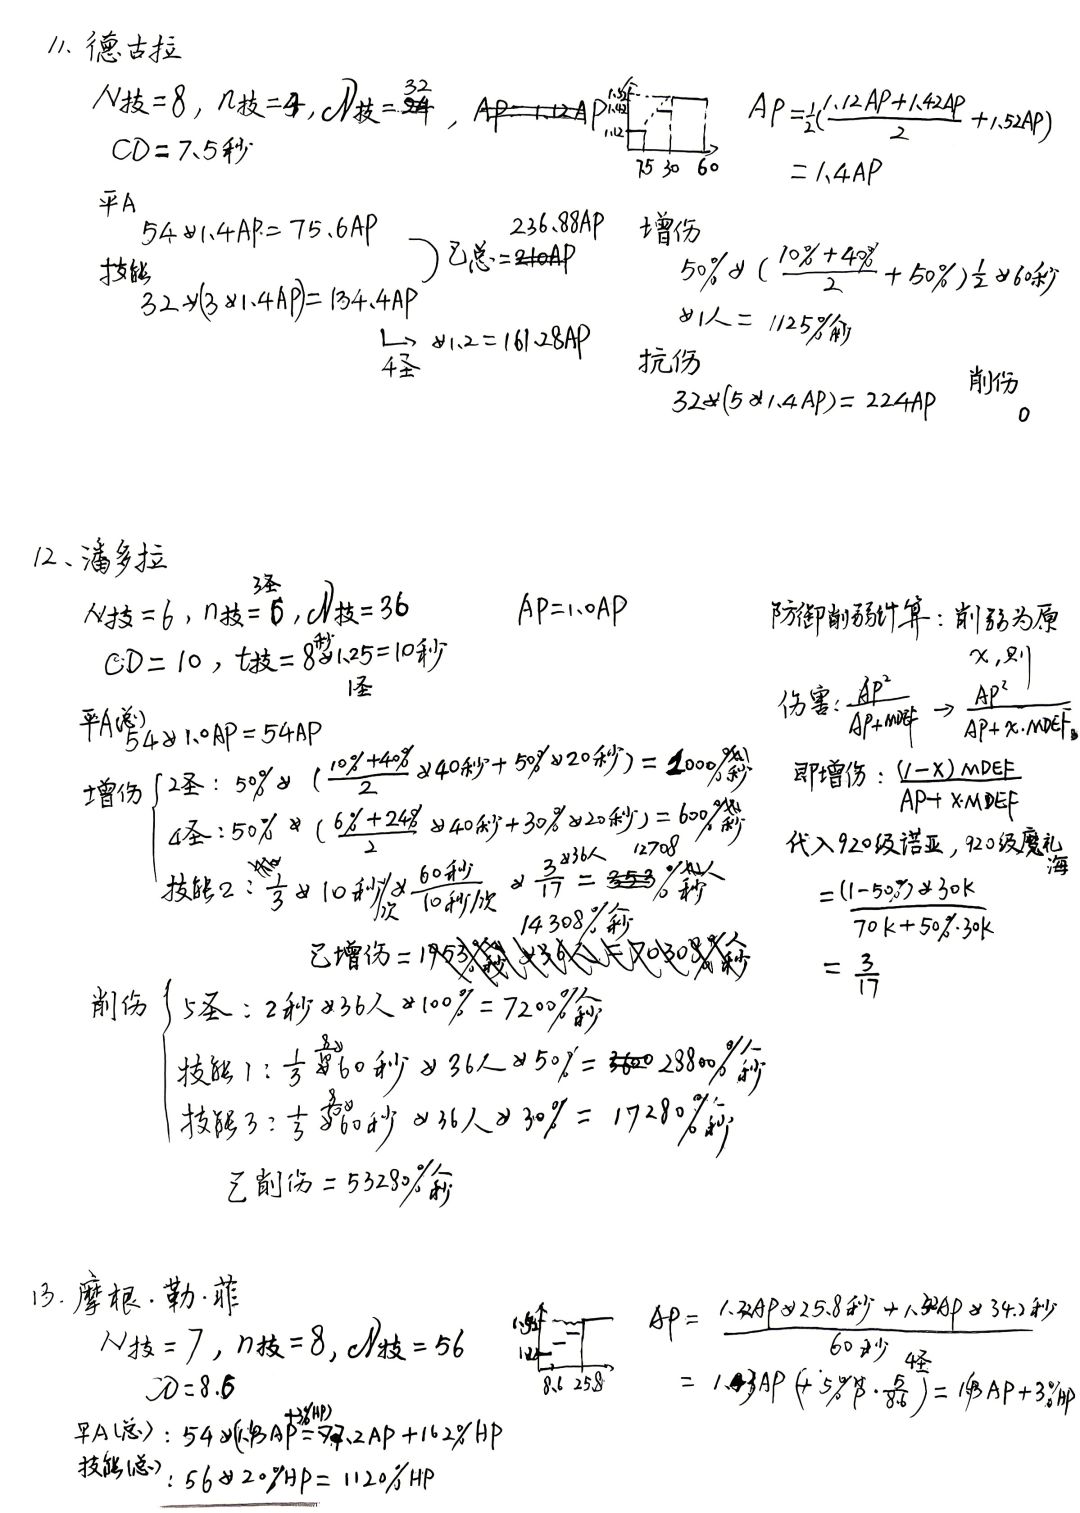 11、德古拉
N技=8, n技=4, N技=32, AP=1.12AP
1.52
1.42
1.12
7.5 30 60
AP=½(1.12AP+1.42AP/2+1.52AP)
=1.4AP
CD=7.5秒
平A
54×1.4AP=75.6AP
技能
32×(3×1.4AP)=134.4AP
→×1.2=161.28AP
4圣
总=210AP
236.88AP
增伤
50%×(10%+40%/2+50%)½×60秒
×1人=1125%秒
抗伤
32×(5×1.4AP)=224AP
削伤
0
12、潘多拉
3圣
N技=6, n技=6, N技=36
AP=1.0AP
CD=10, t技=8秒×1.25=10秒
1圣
平A(总)
54×1.0AP=54AP
增伤
2圣:50%×(10%+40%/2×40秒+50%×20秒)=1000%秒
4圣:50%×(6%+24%/2×40秒+30%×20秒)=600%秒
技能2:⅓×10秒/次×60秒/10秒/次×3/17×36人=12708%人秒
14308%人秒
总增伤=
削伤
5圣:2秒×36人×100%=7200%人秒
技能1:⅓×8×60秒×36人×50%=3600 28800%人秒
技能3:⅓×8×60秒×36人×30%=17280%人秒
总削伤=53280%人秒
防御削弱计算:削弱为原
x,则
伤害:AP²/AP+MDEF→AP²/AP+x·MDEF
即增伤:(1-x)MDEF/AP+x·MDEF
代入920级诺亚,920级魔礼
海
=(1-50%)×30K/70K+50%·30K
=3/17
13.摩根·勒·菲
N技=7, n技=8, N技=56
CD=8.6
8.6 25.8
AP=1.32AP×25.8秒+1.52AP×34.2秒/60秒
4圣
=1.43AP(+5%HP·5/8.6)=1.43AP+3%HP
平A(总):54×(1.43AP+3%HP)=77.2AP+162%HP
技能(总):56×20%HP=1120%HP